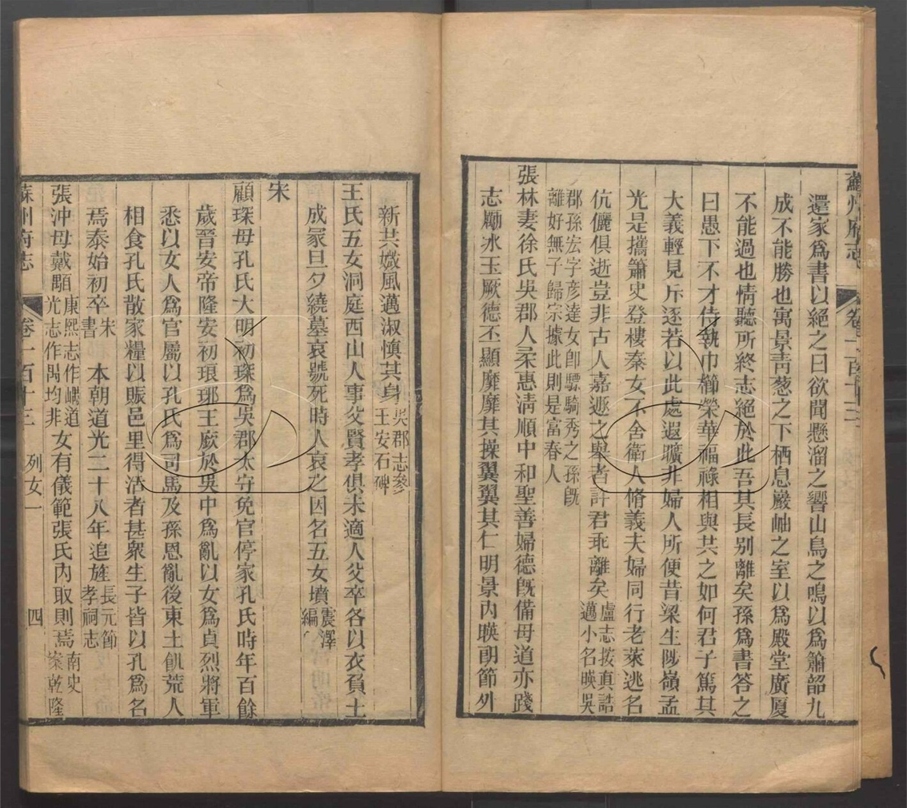 蘇州府志 卷一百十三
還家爲書以絕之曰欲聞懸溜之響山鳥之鳴以爲簫韶九
成不能勝也寓景靑葱之下栖息巖岫之室以爲殿堂廣厦
不能過也情聽所終志絕於此吾其長别離矣孫爲書答之
曰愚下不才侍執巾櫛榮華福祿相與共之如何君子篤其
大義輕見斥逐若以此處遐曠非婦人所便昔梁生陟嶺孟
光是攜簫史登樓秦女不舍衛人脩義夫婦同行老萊逃名
伉儷俱逝豈非古人嘉遯之舉者許君乖離矣盧志按真誥邁小名暎吳
郡孫宏字彥達女卽驃騎秀之孫旣離好無子歸宗據此則是富春人
張林妻徐氏吳郡人柔惠淸順中和聖善婦德旣備母道亦踐
志勵冰玉厥德丕顯靡靡其操翼翼其仁明景內暎朗節外
新共媺風邁淑愼其身吳郡志參王安石碑
王氏五女洞庭西山人事父賢孝俱未適人父卒各以衣負土
成冢旦夕繞墓哀號死時人哀之因名五女墳震澤編
宋
顧琛母孔氏大明初琛爲吳郡太守免官停家孔氏時年百餘
歲晉安帝隆安初琅琊王廞於吳中爲亂以女爲貞烈將軍
悉以女人爲官屬以孔氏爲司馬及孫恩亂後東土飢荒人
相食孔氏散家糧以賑邑里得活者甚衆生子皆以孔爲名
焉泰始初卒宋書 本朝道光二十八年追旌長元節孝祠志
張沖母戴顒康熙志作巘道光志作禺均非女有儀範張氏內取則焉南史案乾隆
蘇州府志 卷一百十三 列女一 四